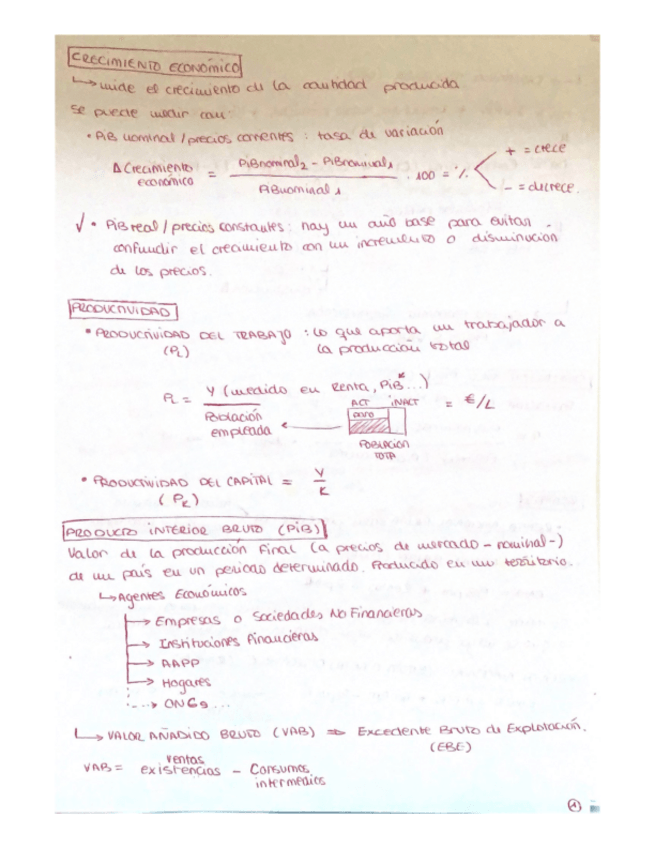 CRECIMIENTO ECONÓMICO
↳ mide el crecimiento de la cantidad producida
se puede medir con:
• PIB nominal / precios corrientes : tasa de variación
Δ Crecimiento económico = PiBnominal2 - PiBnominal1 / PIBnominal 1 · 100 = %
+ = crece
- = decrece.
√ • PiB real / precios constantes: hay un año base para evitar
confundir el crecimiento con un incremento o disminución
de los precios.
PRODUCTIVIDAD
• PRODUCTIVIDAD DEL TRABAJO : lo que aporta un trabajador a
(PL) la producción total
PL = Y (medido en Renta, PiB...) / Población empleada = €/L
ACT INACT
paro
POBLACIÓN
TOTA
• PRODUCTIVIDAD DEL CAPITAL = Y / K
(PK)
PRODUCTO INTERIOR BRUTO (PiB)
Valor de la producción final (a precios de mercado - nominal -)
de un país en un periodo determinado. Producido en un territorio.
↳ Agentes Económicos
→ Empresas o Sociedades No Financieras
→ Instituciones Financieras
→ AAPP
→ Hogares
→ ONGs...
↳ VALOR AÑADIDO BRUTO (VAB) ⇒ Excedente Bruto de Explotación.
(EBE)
VAB = ventas existencias - Consumos intermedios
1